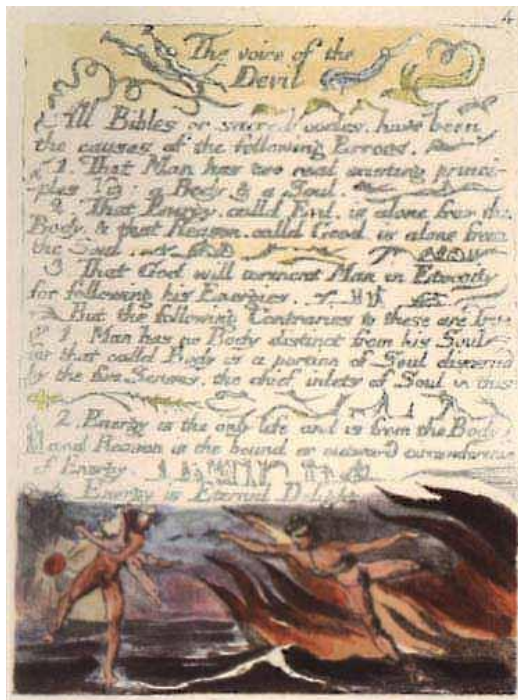 4
The voice of the
Devil
All Bibles or sacred codes. have been
the causes of the following Errors.
1. That Man has two real existing princi-
ples Viz: a Body & a Soul.
2. That Energy. calld Evil. is alone from the
Body. & that Reason. calld Good. is alone from
the Soul.
3 That God will torment Man in Eternity
for following his Energies.
But the following Contraries to these are True
1 Man has no Body distinct from his Soul
for that calld Body is a portion of Soul discernd
by the five Senses. the chief inlets of Soul in this
2. Energy is the only life and is from the Body
and Reason is the bound or outward circumference
of Energy.
Energy is Eternal Delight